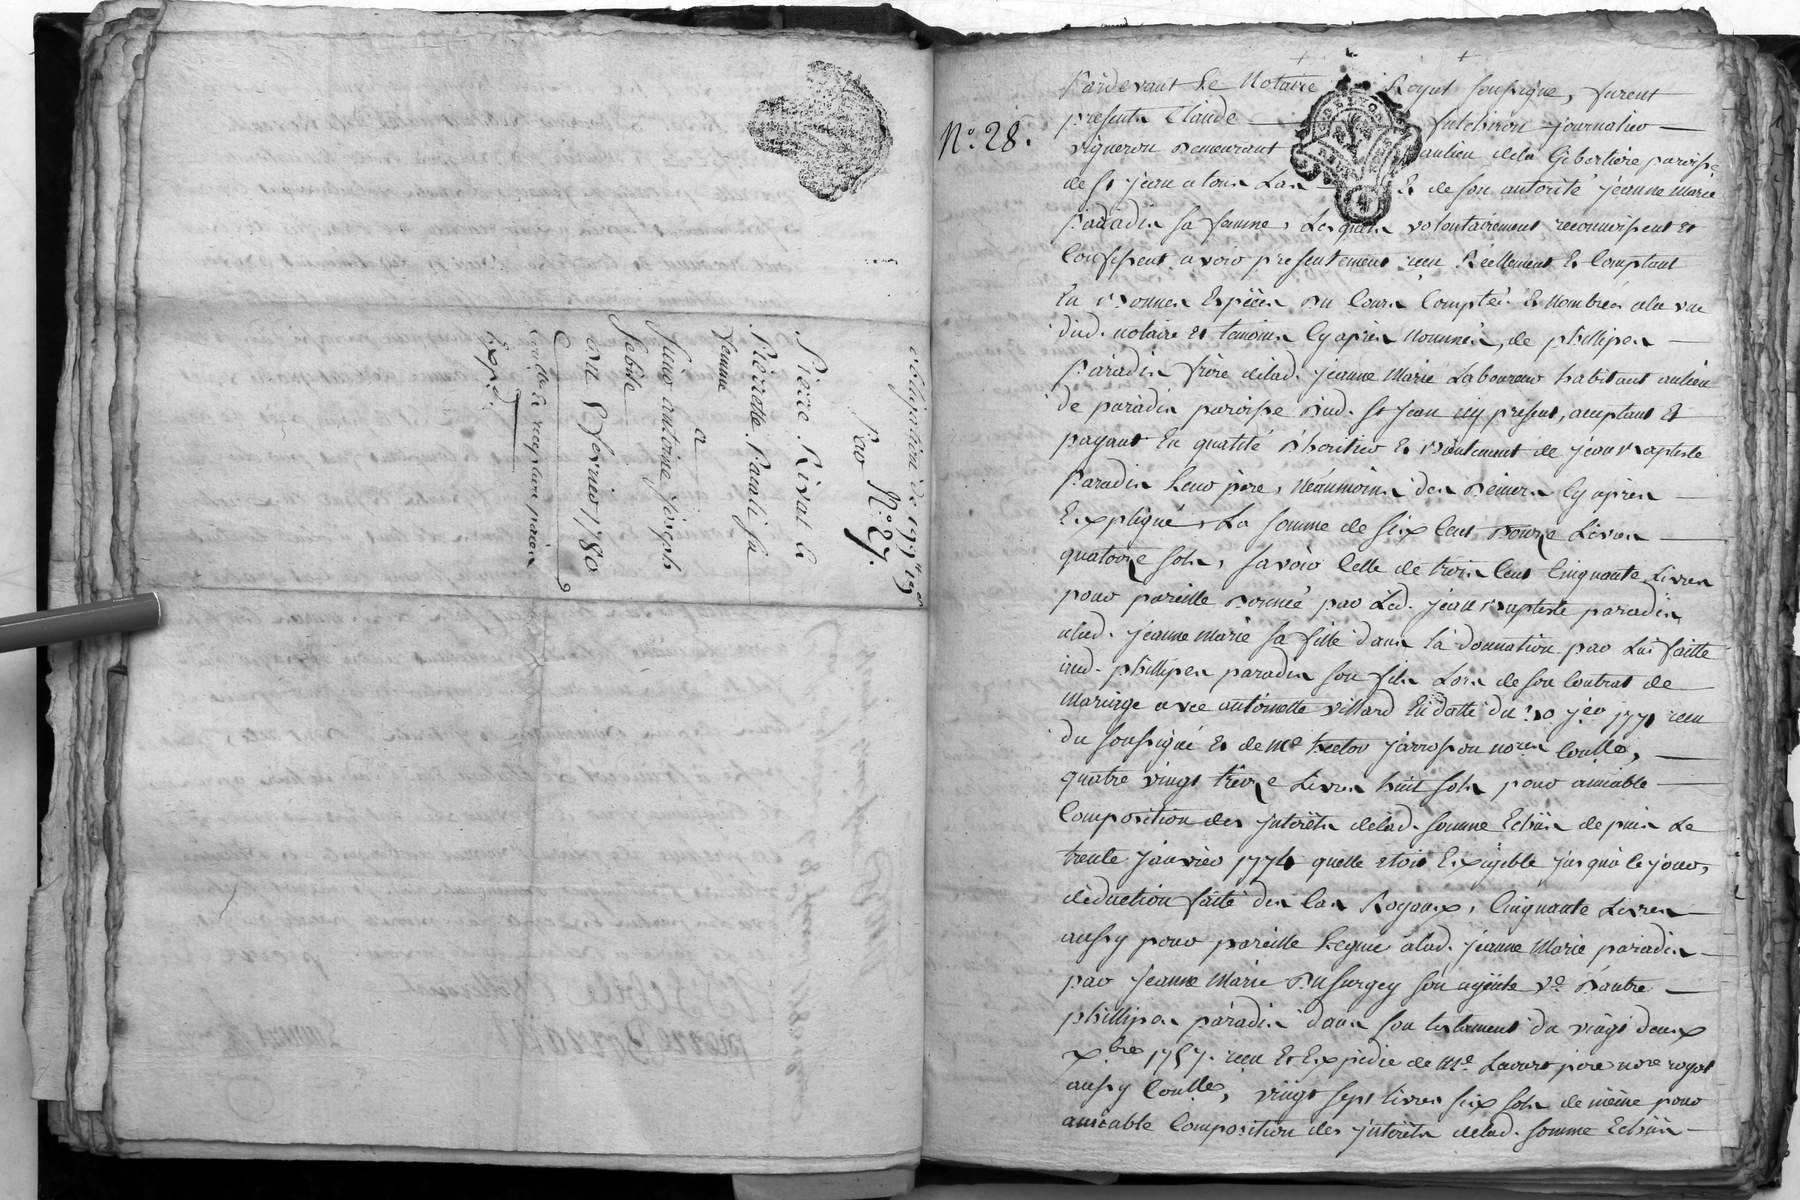 obligation de 199ᴸ 19ˢ
Par N.º 27.
Pierre Rivat &
Pierrette Parадi sa
femme
a
Sieur antoine joseph
Sebile
du 8 fevrier 1780
Con.lle la recepture parien
Exp.é
N.º 28.
Pardevant Le Notaire Royal soussigné, furent
presents Claude futchiron journalier
vigneron demeurant au lieu dela Gibertiere paroisse
de St jean a tous Las Et de son autorité jeanne Marie
paradis sa femme, Lesquels volontairement reconnoissent et
Confessent avoir presentement reçu Reellement & Comptant
En Bonnes Especes du Cours Comptées & nombrées ala vue
dud. notaire et temoins Cyaprès nommés, de phillipes
paradis frère delad. jeanne Marie Laboureur habitant au lieu
de paradis paroisse dud. St jean icy present, acceptant Et
payant En qualité d'heritier Et Bientenant de jean Baptiste
Paradis leur père, Neaumoins des deniers Cyaprès
Expliqué, La somme de six Cent Douze Livres
quatorze sols, savoir Celle de trois Cent Cinquante Livres
pour pareille Donnée par Led. jean Baptiste paradis
alad. jeanne marie sa fille dans la donnation par Lui faitte
aud. phillipes paradis son fils Lors de son Contrat de
Mariage avec antoinette villard En datte du 10 7.bre 1771 reçu
du soussigné Et de Me hector jarrosson no.res Con.lle,
quatre vingt treize Livres huit sols pour amiable
Composition des jnterêts delad. somme Echus depuis Le
trente janvier 1774 quelle étoit Exigible jusqua Ce jour,
déduction faite des Cas Royaux, Cinquante Livres
aussy pour pareille Leguée alad. jeanne Marie paradis
par jeanne Marie Dusurgey son ayeule v.e D'autre
phillipes paradis dans son testament du vingt deux
X.bre 1757. reçu Et Expedié de Me. Lavure pere no.re royal
aussy Con.lle, vingt sept livres six sols de même pour
amiable Composition des jnterêts delad. somme Echus